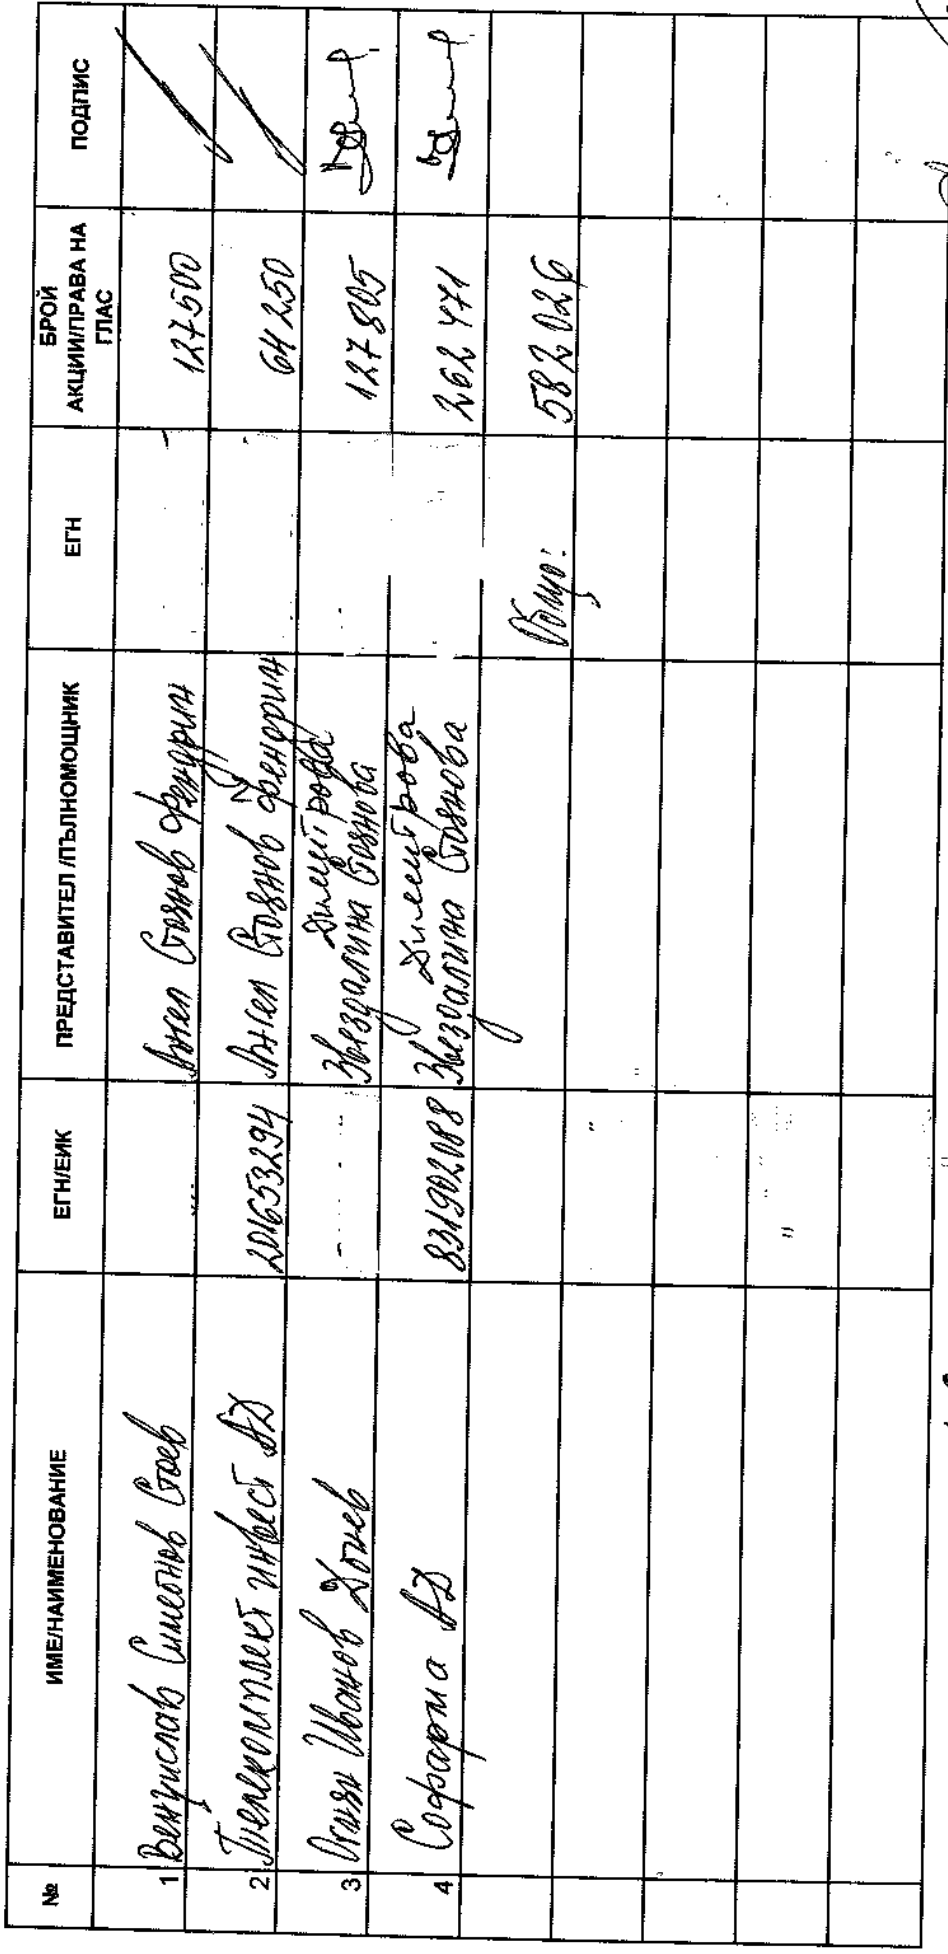 № ИМЕ/НАИМЕНОВАНИЕ ЕГН/ЕИК ПРЕДСТАВИТЕЛ /ПЪЛНОМОЩНИК ЕГН БРОЙ АКЦИИ/ПРАВА НА ГЛАС ПОДПИС
1 Венцислав Симеонов Стоев Ангел Стоянов Фендрин 127500
2 Телекомплект инвест АД 201653294 Ангел Стоянов Фендрин 64 250
Димитрова
3 Огнян Иванов Донев Звездалина Стоянова 127 805
Димитрова
4 Софарма АД 831902088 Звездалина Стоянова 262 471
Общо: 582 026